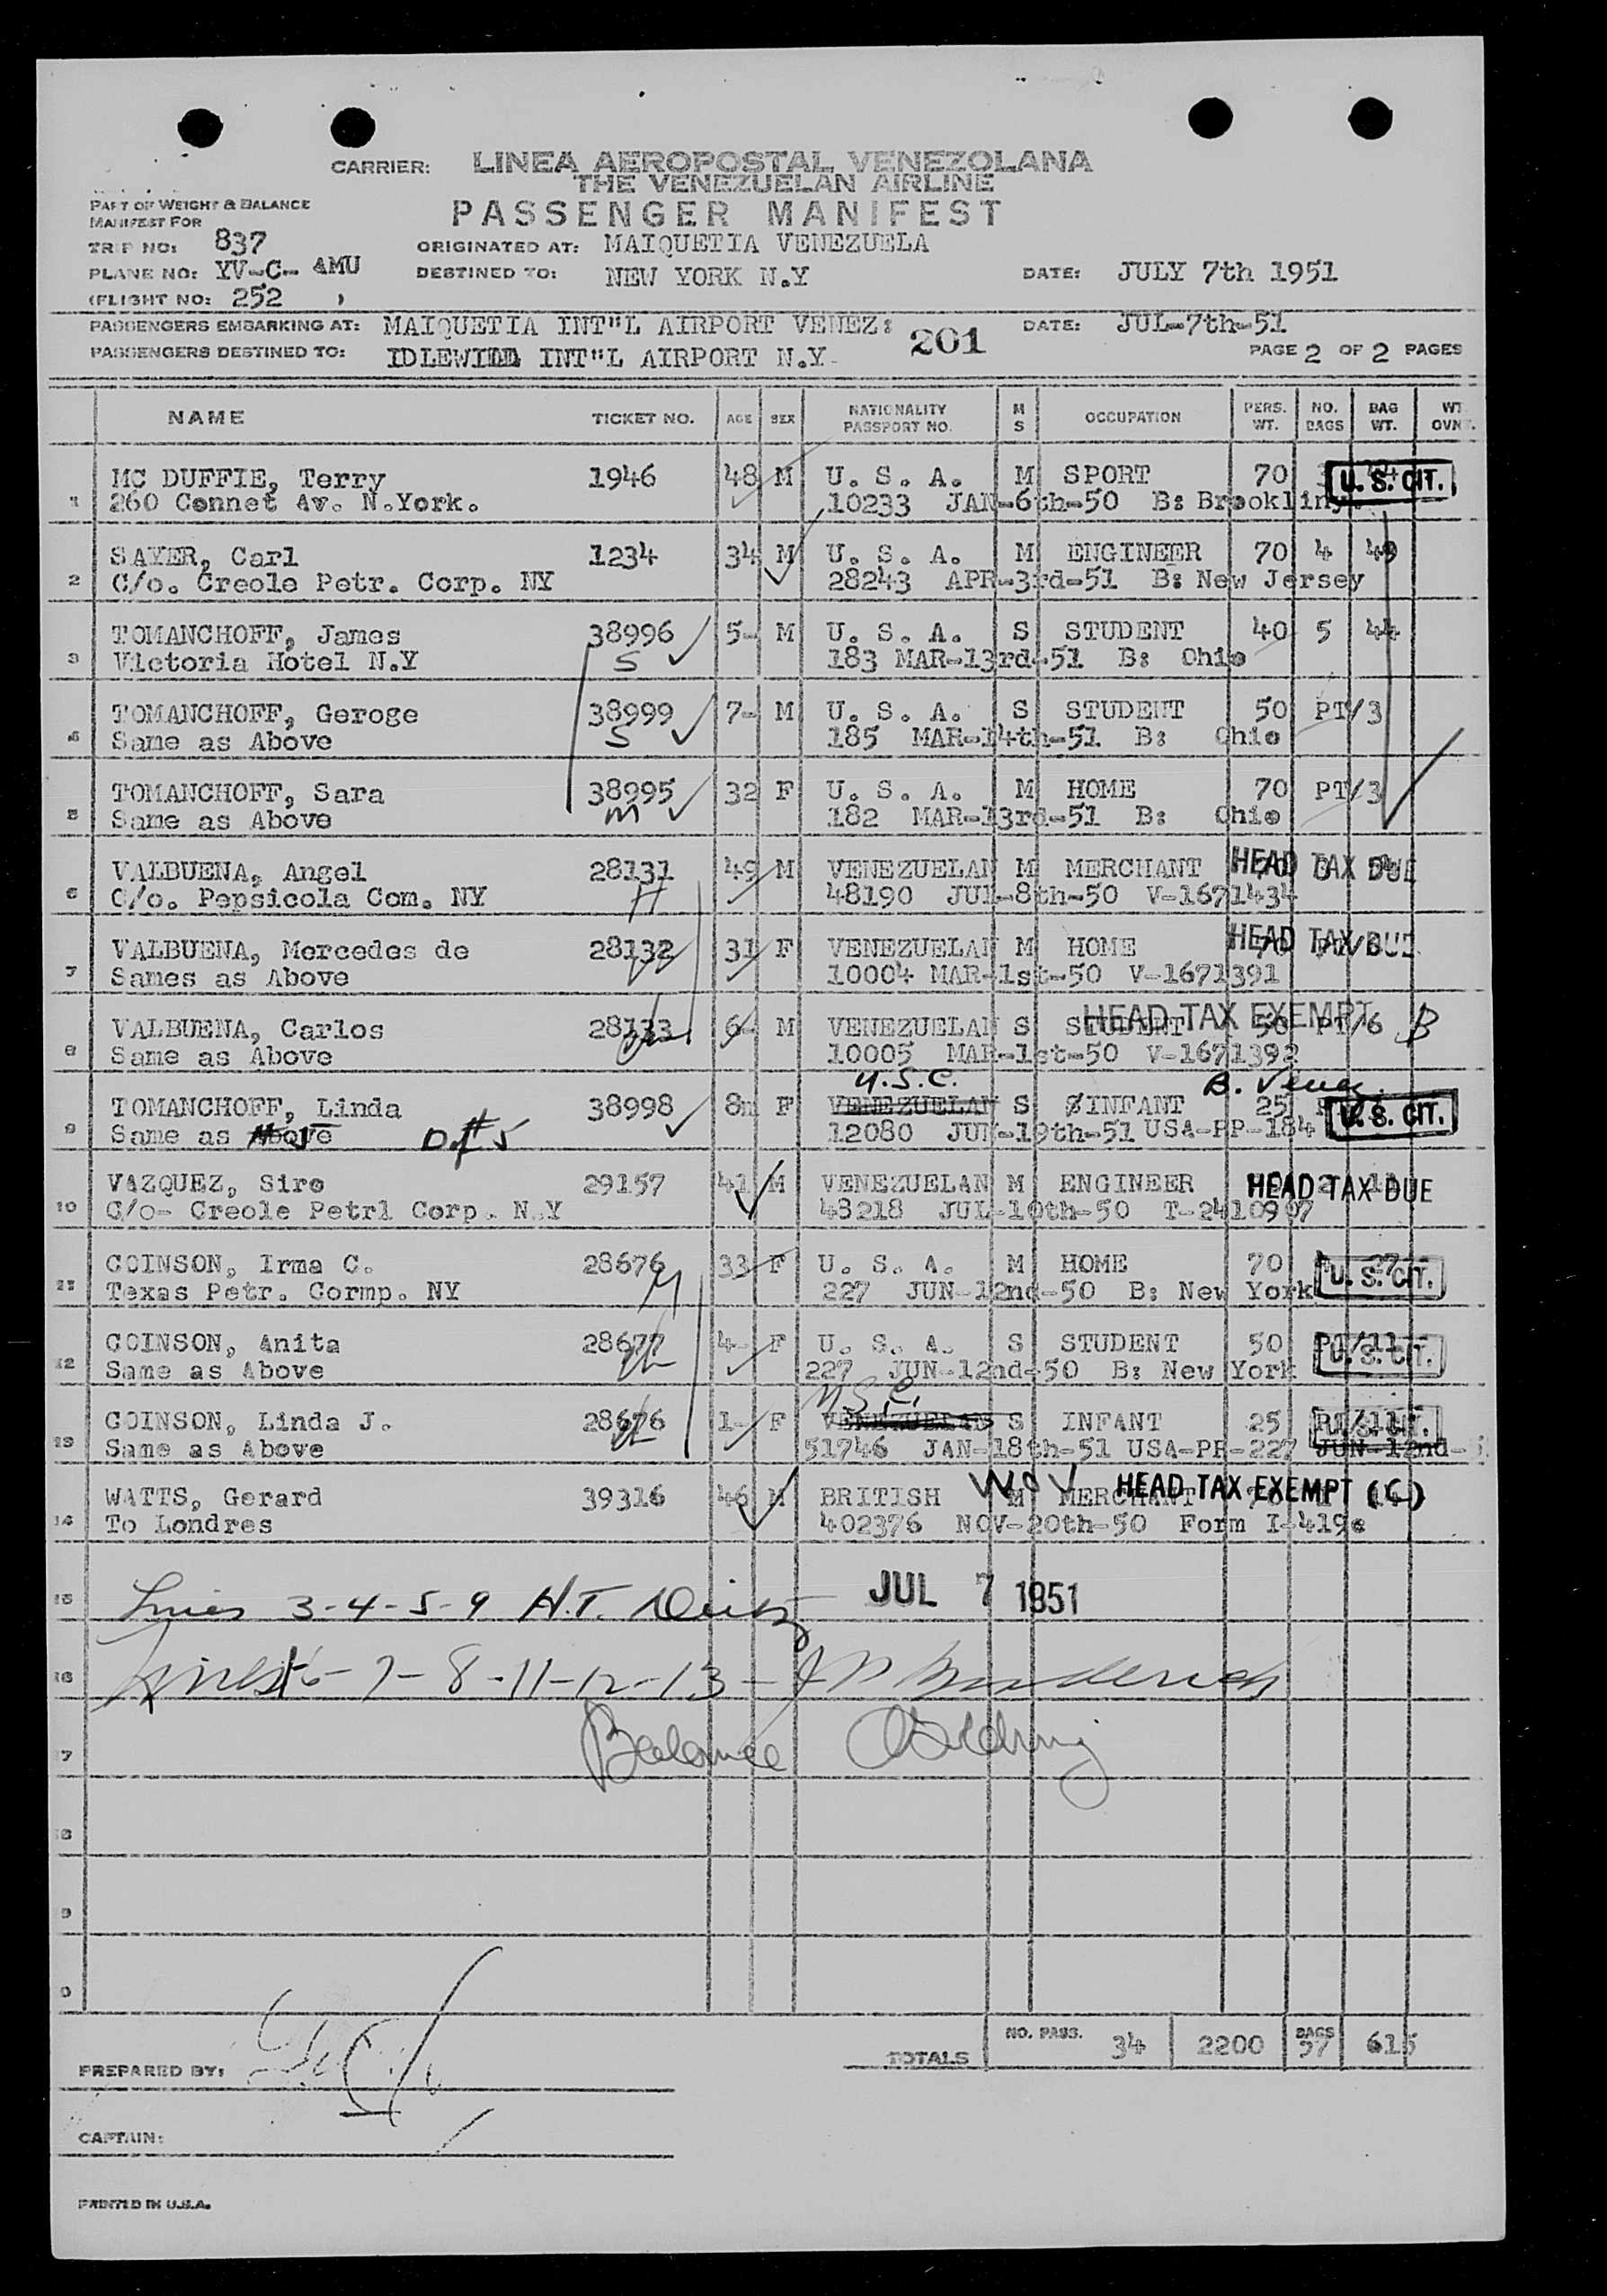 CARRIER: LINEA AEROPOSTAL VENEZOLANA
THE VENEZUELAN AIRLINE
PART OF WEIGHT & BALANCE
MANIFEST FOR
PASSENGER MANIFEST
TRIP NO: 837
ORIGINATED AT: MAIQUETIA VENEZUELA
PLANE NO: YV-C- AMU
DESTINED TO: NEW YORK N.Y
DATE: JULY 7th 1951
(FLIGHT NO: 252 )
PASSENGERS EMBARKING AT: MAIQUETIA INT"L AIRPORT VENEZ: 201 DATE: JUL-7th-51
PASSENGERS DESTINED TO: IDLEWILD INT"L AIRPORT N.Y. PAGE 2 OF 2 PAGES
NAME TICKET NO. AGE SEX NATIONALITY PASSPORT NO. M S OCCUPATION PERS. WT. NO. BAGS BAG WT. WT. OVNT.
1 MC DUFFIE, Terry 1946 48 M U. S. A. M SPORT 70 U. S. CIT.
260 Connet Av. N.York. 10233 JAN-6th-50 B: Brookliny
2 SAYER, Carl 1234 34 M U. S. A. M ENGINEER 70 4 49
C/o. Creole Petr. Corp. NY 28243 APR-3rd-51 B: New Jersey
3 TOMANCHOFF, James 38996 5- M U. S. A. S STUDENT 40 5 44
Victoria Hotel N.Y S 183 MAR-13rd-51 B: Ohio
4 TOMANCHOFF, Geroge 38999 7- M U. S. A. S STUDENT 50 PT/3
Same as Above S 185 MAR-14th-51 B: Ohio
5 TOMANCHOFF, Sara 38995 32 F U. S. A. M HOME 70 PT/3
Same as Above M 182 MAR-13rd-51 B: Ohio
6 VALBUENA, Angel 28131 49 M VENEZUELAN M MERCHANT HEAD TAX DUE
C/o. Pepsicola Com. NY H 48190 JUL-8th-50 V-1671434
7 VALBUENA, Mercedes de 28132 31 F VENEZUELAN M HOME 70 PT/6 HEAD TAX DUE
Sames as Above W 10004 MAR-1st-50 V-1671391
8 VALBUENA, Carlos 28133 6- M VENEZUELAN S STUDENT 50 PT/6 HEAD TAX EXEMPT B
Same as Above 10005 MAR-1st-50 V-1671392
U.S.C. B. Venez.
9 TOMANCHOFF, Linda 38998 8m F VENEZUELAN S INFANT 25 U. S. CIT.
Same as Above D. of #5 12080 JUN-19th-51 USA-PP-184
10 VAZQUEZ, Siro 29157 41 M VENEZUELAN M ENGINEER HEAD TAX DUE
C/o- Creole Petrl Corp. N.Y 48218 JUL-10th-50 T-2410907
11 COINSON, Irma C. 28676 33 F U. S. A. M HOME 70 27 U. S. CIT.
Texas Petr. Cormp. NY 227 JUN-12nd-50 B: New York
12 COINSON, Anita 28677 4- F U. S. A. S STUDENT 50 PT/11 U. S. CIT.
Same as Above 227 JUN-12nd-50 B: New York
U.S.C.
13 COINSON, Linda J. 28676 1- F VENEZUELAN S INFANT 25 PT/11 U. S. CIT.
Same as Above 51746 JAN-18th-51 USA-PP-227 JUN-12nd-
14 WATTS, Gerard 39316 46 M BRITISH M MERCHANT 70 HEAD TAX EXEMPT (C)
To Londres 402376 NOV-20th-50 Form I-419
15 Lines 3-4-5-9 H.T. JUL 7 1951
16 Lines 6-7-8-11-12-13-
17 Balance
18
9
0
TOTALS NO. PASS. 34 2200 BAGS 57 615
PREPARED BY:
CAPTAIN:
PRINTED IN U.S.A.